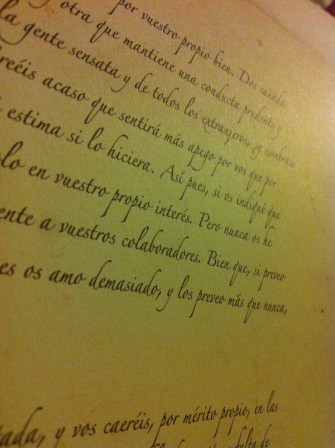 por vuestro propio bien. Dos cuñada
otra que mantiene una conducta prudente y
la gente sensata y de todos los extranjeros, ya
réis acaso que sentirá más apego por vos que por
estima si lo hiciera. Así pues, si os indiqué que
lo en vuestro propio interés. Pero nunca os he
ente a vuestros colaboradores. Bien que, si preveo
es os amo demasiado, y los preveo más que nunca,
ada, y vos caeréis, por mérito propio, en las
falta de